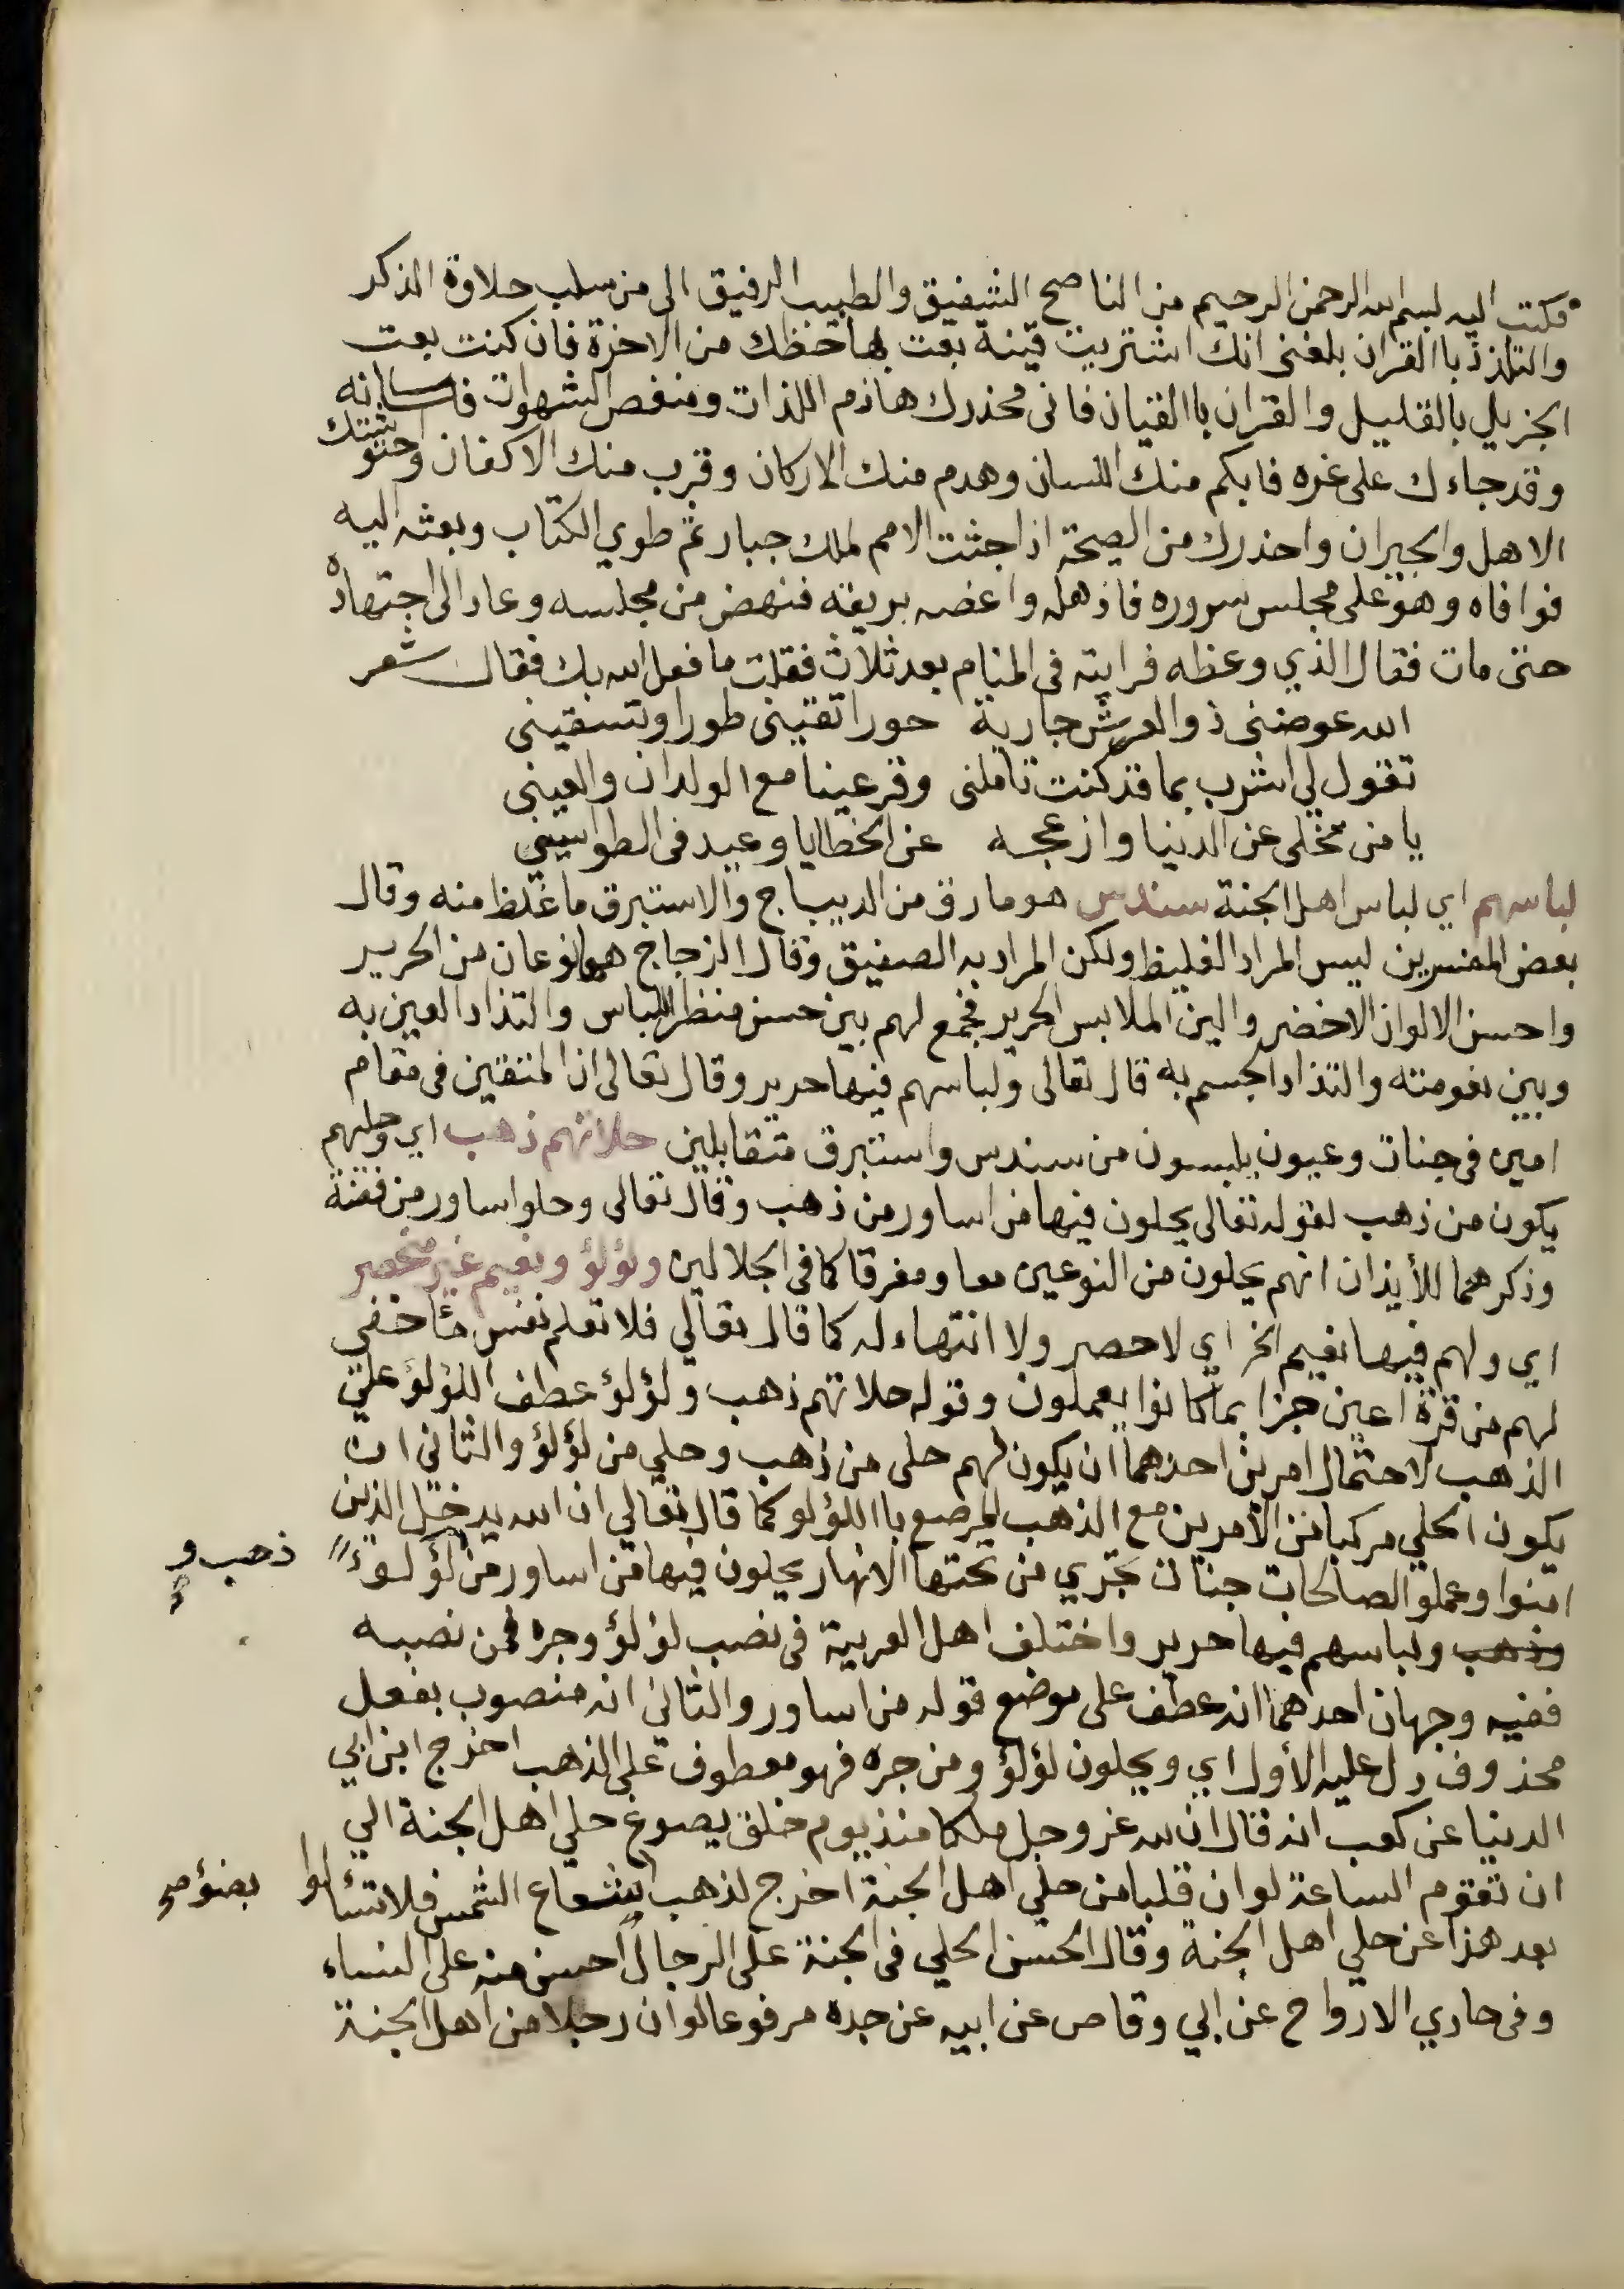 فكتب اليه بسم الله الرحمن الرحيم من الناصح الشفيق والطبيب الرفيق الى من سلب حلاوة الذكر
والتلذذ باالقران بلغنى انك اشتريت قينة بعت بها حظك من الاخرة فان كنت بعت
الجزيل بالقليل والقران باالقيان فانى محذرك هاذم اللذات ومنغص الشهوات فكانه
وقد جاءك على غره فابكم منك اللسان وهدم منك الاركان وقرب منك الاكفان واحتوشتك
الاهل والجيران واحذرك من الصيحة اذا جثت الامم لملك جبار ثم طوي الكتاب وبعثه اليه
فوافاه وهو على مجلس سروره فاذهله واغصه بريقه فنهض من مجلسه وعاد الى اجتهاده
حتى مات فقال الذي وعظه فرايته فى المنام بعد ثلاث فقلت ما فعل الله بك فقال شعر
الله عوضنى ذو العرش جارية حورا تقينى طورا وتسقينى
تقول لي اشرب بما قد كنت تاملنى وقر عينا مع الولدان والعينى
يا من تخلى عن الدنيا وازعجه عن الخطايا وعيد فى الطواسينى
لباسهم اي لباس اهل الجنة سندس هو ما رق من الديباج والاستبرق ما غلظ منه وقال
بعض المفسرين ليس المراد الغليظ ولكن المراد به الصفيق وقال الزجاج هما نوعان من الحرير
واحسن الالوان الاخضر والين الملابس الحرير فجمع لهم بين حسن منظر اللباس والتذاذ العين به
وبين نعومته والتذاذ الجسم به قال تعالى ولباسهم فيها حرير وقال تعالى ان المتقين فى مقام
امين فى جنات وعيون يلبسون من سندس واستبرق متقابلين حلاتهم ذهب اي وحليهم
يكون من ذهب لقوله تعالى يحلون فيها من اساور من ذهب وقال تعالى وحلوا ساور من فضة
وذكرهما للأيذان انهم يحلون من النوعين معا ومفرقا كما فى الجلالين ولؤلؤ ونعيم غير منحصر
اي ولهم فيها نعيم الخ اي لا حصر ولا انتهاء له كما قال تعالي فلا تعلم نفس ما اخفي
لهم من قرة اعين جزا بما كانوا يعملون وقوله حلاتهم ذهب ولؤلؤ عطف اللؤلؤ على
الذهب لاحتمال امرين احدهما ان يكون لهم حلى من ذهب وحلي من لؤلؤ والثانى ان
يكون الحلي مركبا من الأمرين مع الذهب المرصع باللؤلو كما قال تعالي ان الله يدخل الذين
امنوا وعملو الصالحات جنات تجري من تحتها الانهار يحلون فيها من اساور من لؤلوء
ذهب و
وذهب ولباسهم فيها حرير واختلف اهل العربية فى نصب لؤلؤ وجره فمن نصبه
ففيه وجهان احدهما انه عطف على موضع قوله من اساور والثاني انه منصوب بفعل
محذوف دل عليه الأول اي ويحلون لؤلؤ ومن جره فهو معطوف على الذهب اخرج ابن ابي
الدنيا عن كعب انه قال ان لله عز وجل ملكا منذ يوم خلق يصوغ حلي اهل الجنة الي
ان تقوم الساعة لو ان قلبا من حلي اهل الجنة اخرج لذهب شعاع الشمس فلا تسئالوا
بضؤ صح
بعد هذا عن حلي اهل الجنة وقال الحسن الحلي فى الجنة على الرجال احسن منه على النساء
وفى حادي الارواح عن ابي وقاص عن ابيه عن جده مرفوعا لو ان رجلا من اهل الجنة